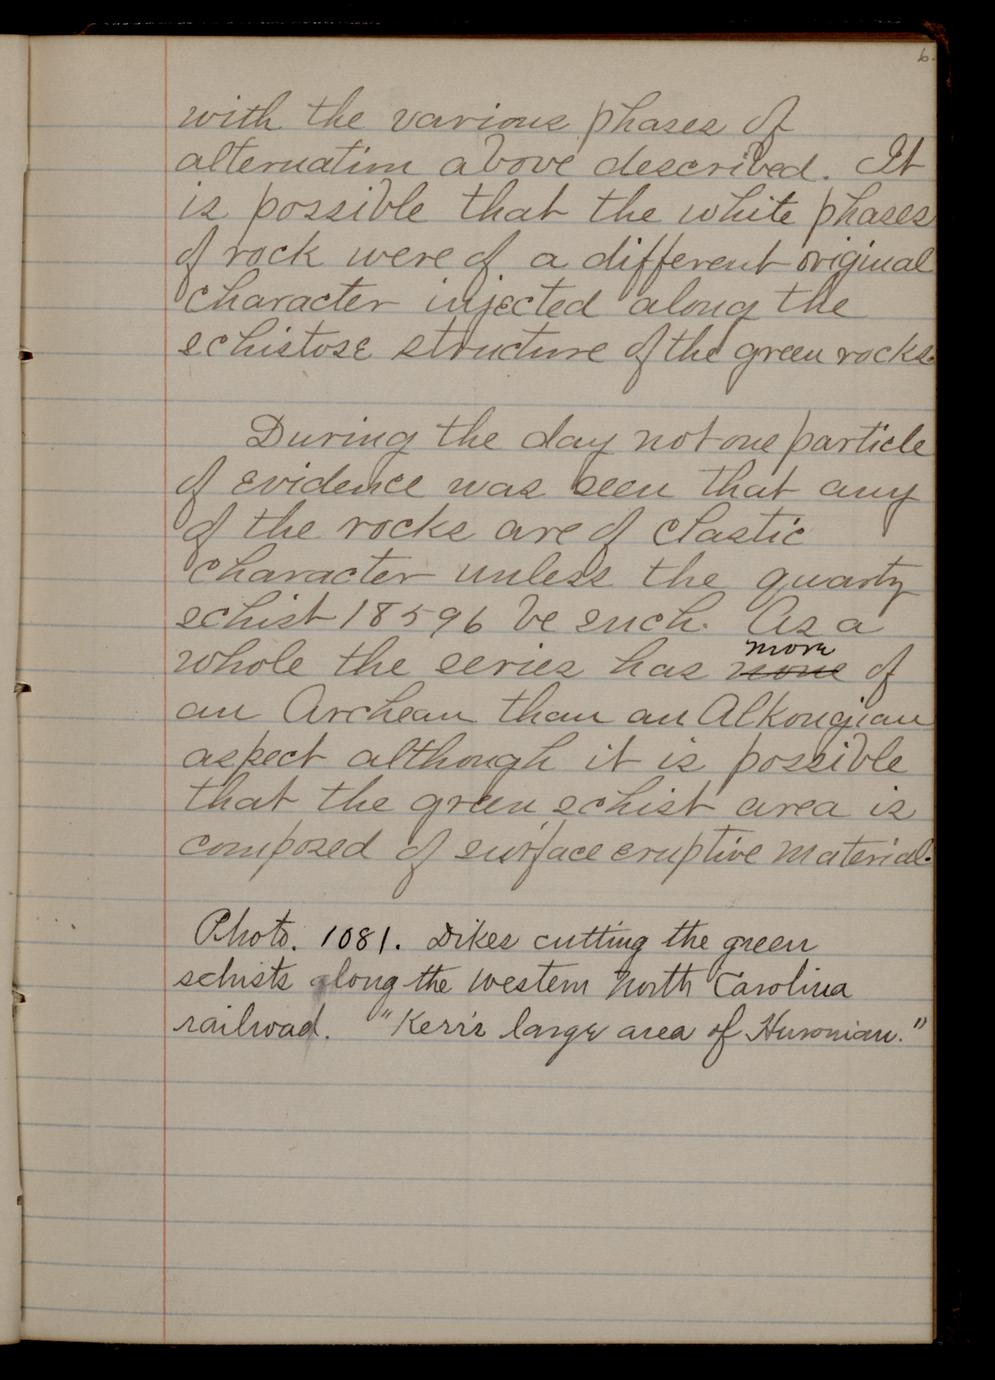 6.
with the various phases of
alternation above described. It
is possible that the white phases
of rock were of a different original
character injected along the
schistose structure of the green rocks.
During the day not one particle
of evidence was seen that any
of the rocks are of clastic
character unless the quartz
schist 18596 be such. As a
more
whole the series has none of
an Archean than an Alkongian
aspect although it is possible
that the green schist area is
composed of surface eruptive material.
Photo. 1081. Dikes cutting the green
schists along the western North Carolina
railroad. "Kerr's large area of Huronian."